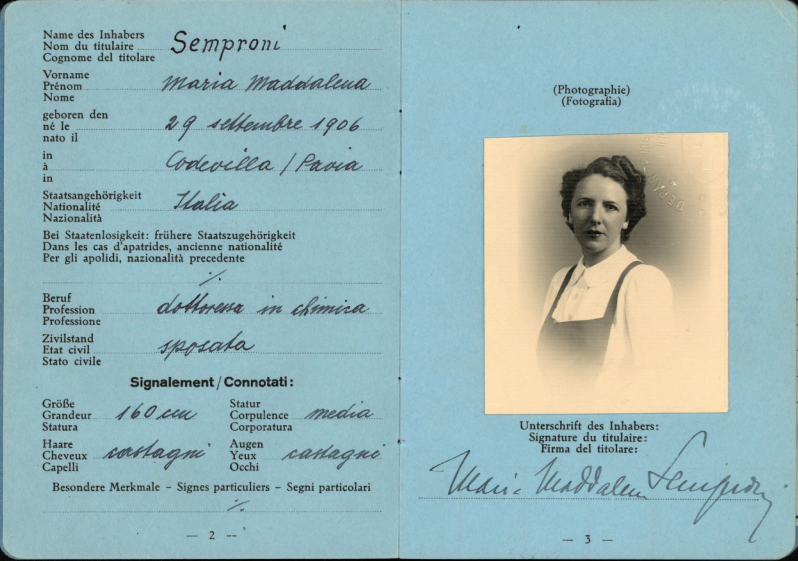 Name des Inhabers
Nom du titulaire Semproni
Cognome del titolare
Vorname
Prénom Maria Maddalena
Nome
geboren den
né le 29 settembre 1906
nato il
in
à Codevilla / Pavia
in
Staatsangehörigkeit
Nationalité Italia
Nazionalità
Bei Staatenlosigkeit: frühere Staatszugehörigkeit
Dans les cas d'apatrides, ancienne nationalité
Per gli apolidi, nazionalità precedente
./.
Beruf
Profession dottoressa in chimica
Professione
Zivilstand
Etat civil sposata
Stato civile
Signalement/Connotati:
Größe
Grandeur 160 cm
Statura
Statur
Corpulence media
Corporatura
Haare
Cheveux castagni
Capelli
Augen
Yeux castagni
Occhi
Besondere Merkmale – Signes particuliers – Segni particolari
./.
— 2 --
(Photographie)
(Fotografia)
Unterschrift des Inhabers:
Signature du titulaire:
Firma del titolare:
Maria Maddalena Semproni
— 3 —